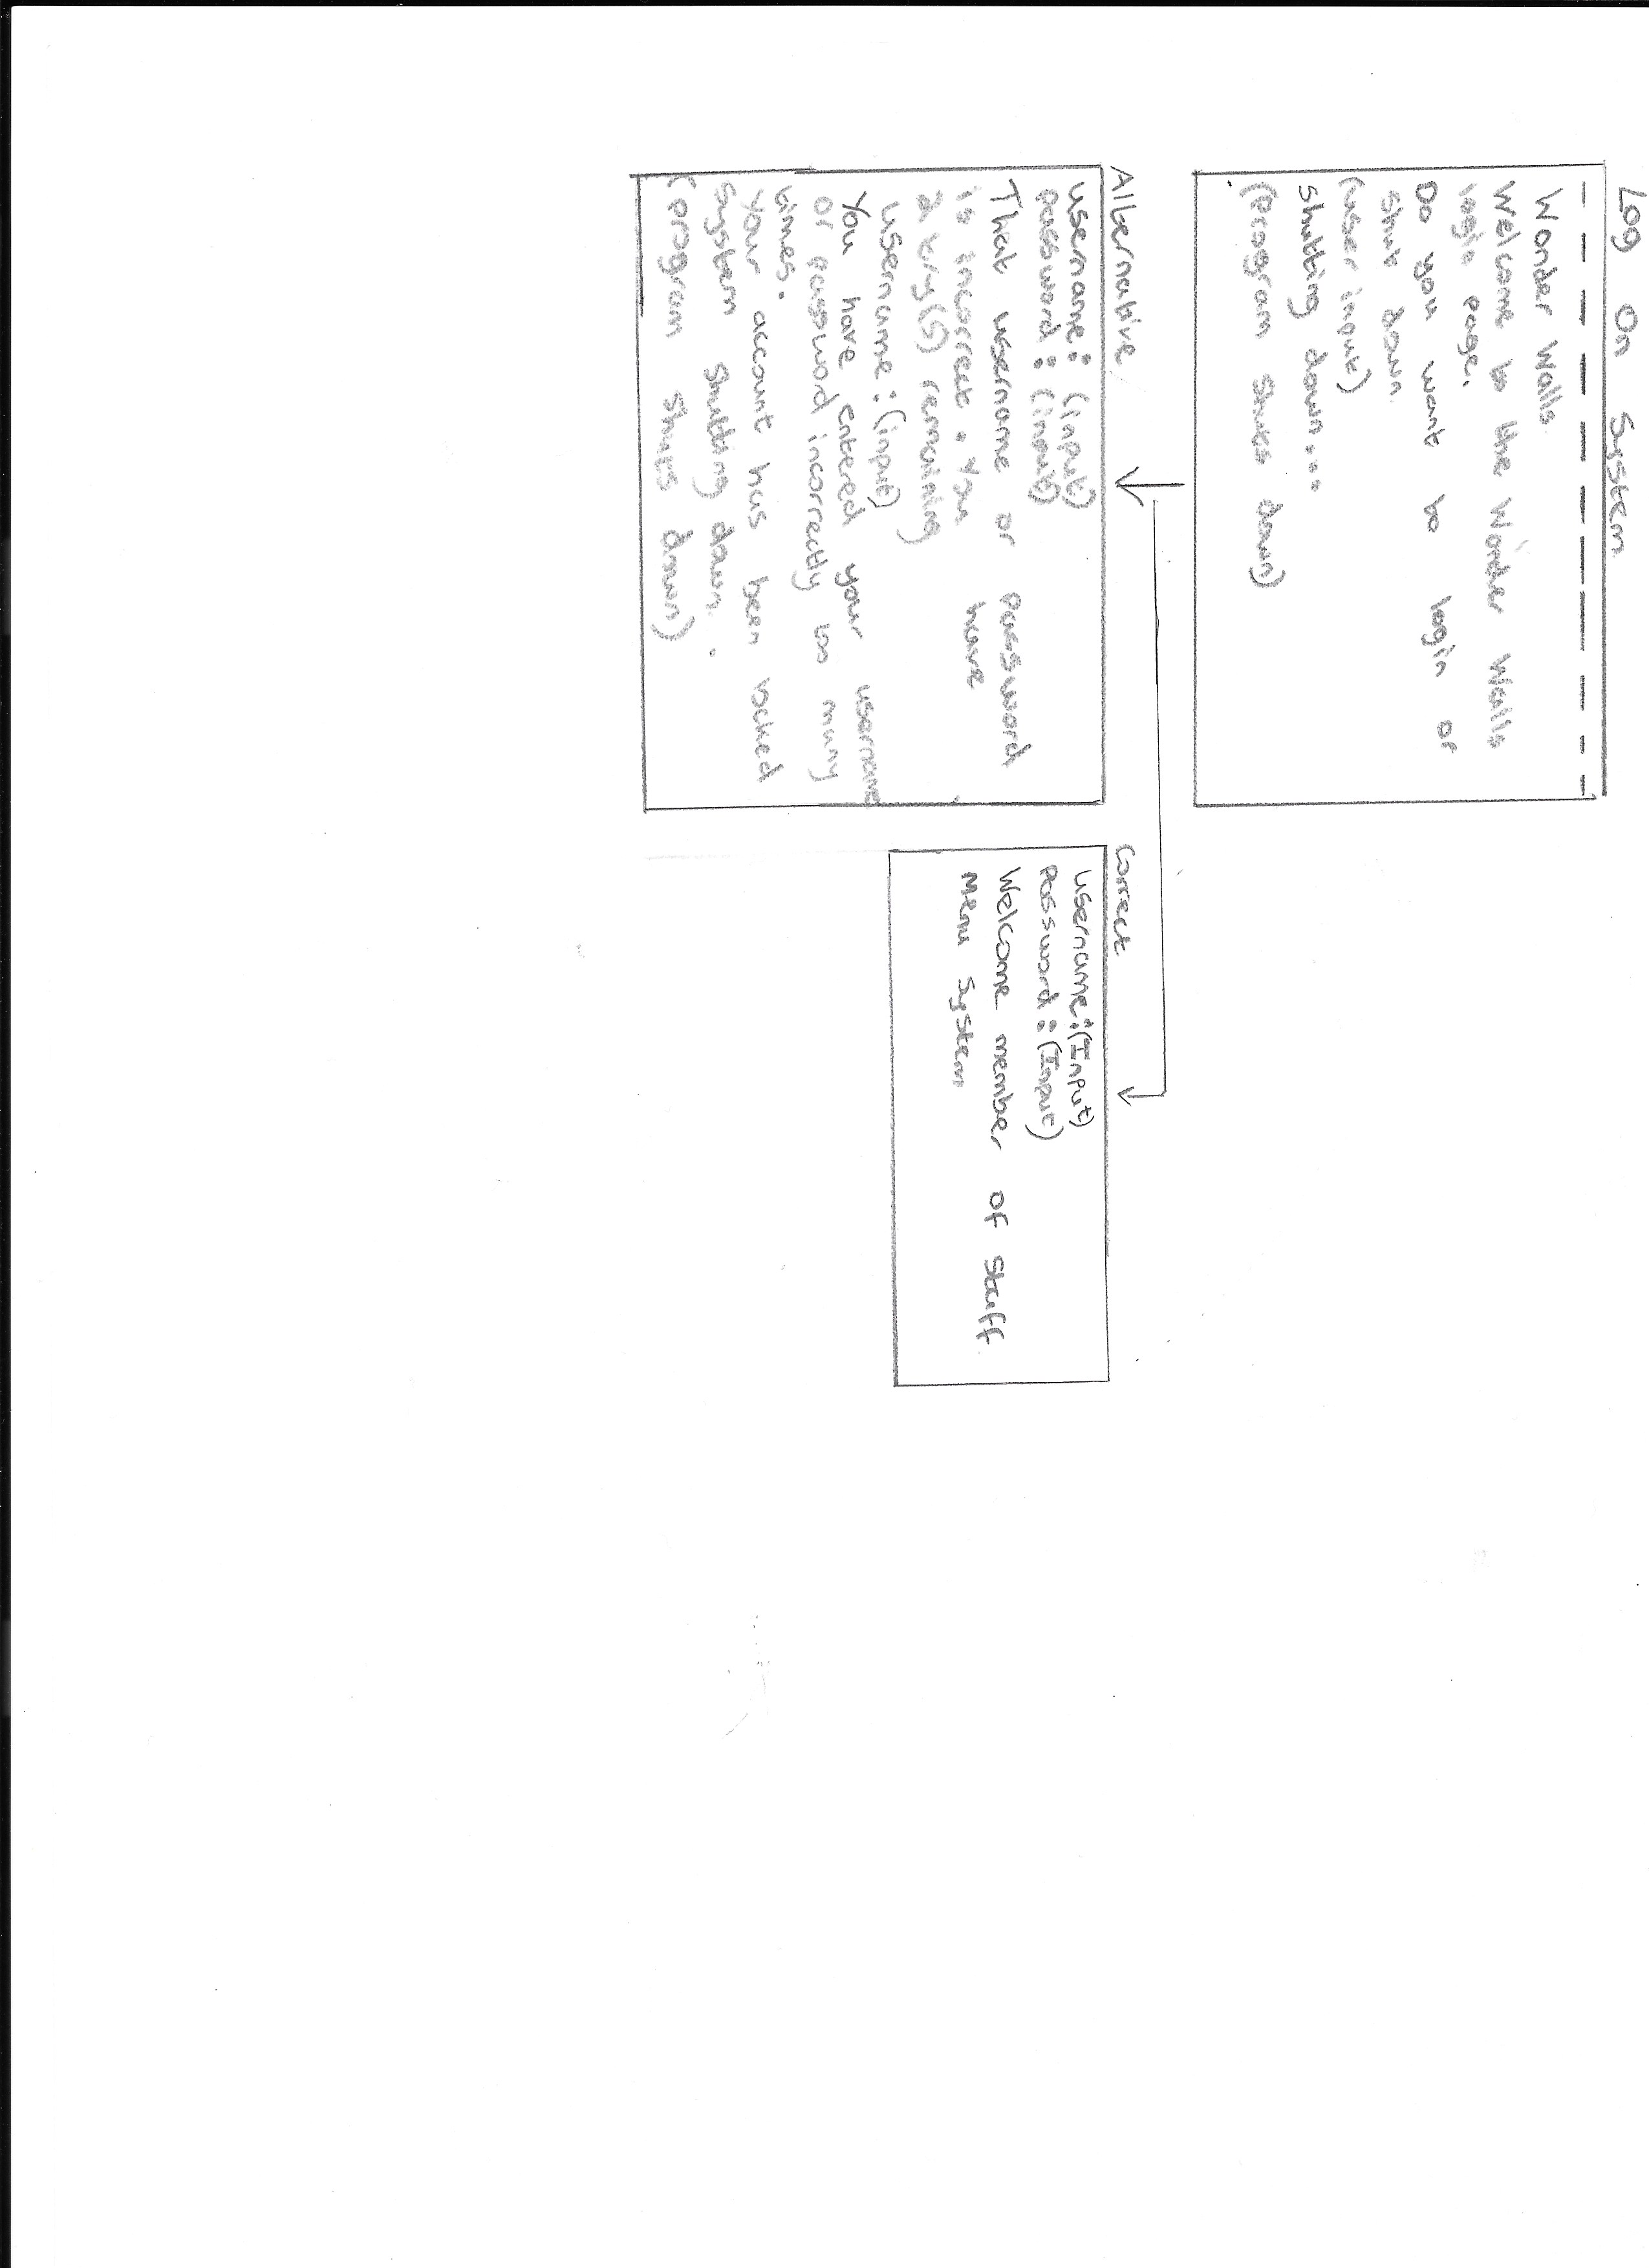 Log on System
Wonder Walls
Welcome to the Wonder Walls
login page.
Do you want to login or
shut down
(user input)
shutting down....
(Program shuts down)
Alternative
username: (input)
password: (input)
That username or password
is incorrect. You have
2 try(s) remaining
username: (input)
You have entered your username
or password incorrectly too many
times.
Your account has been locked
System shutting down.
(program shuts down)
Correct
username:(Input)
Password:(Input)
Welcome member of staff
Menu System